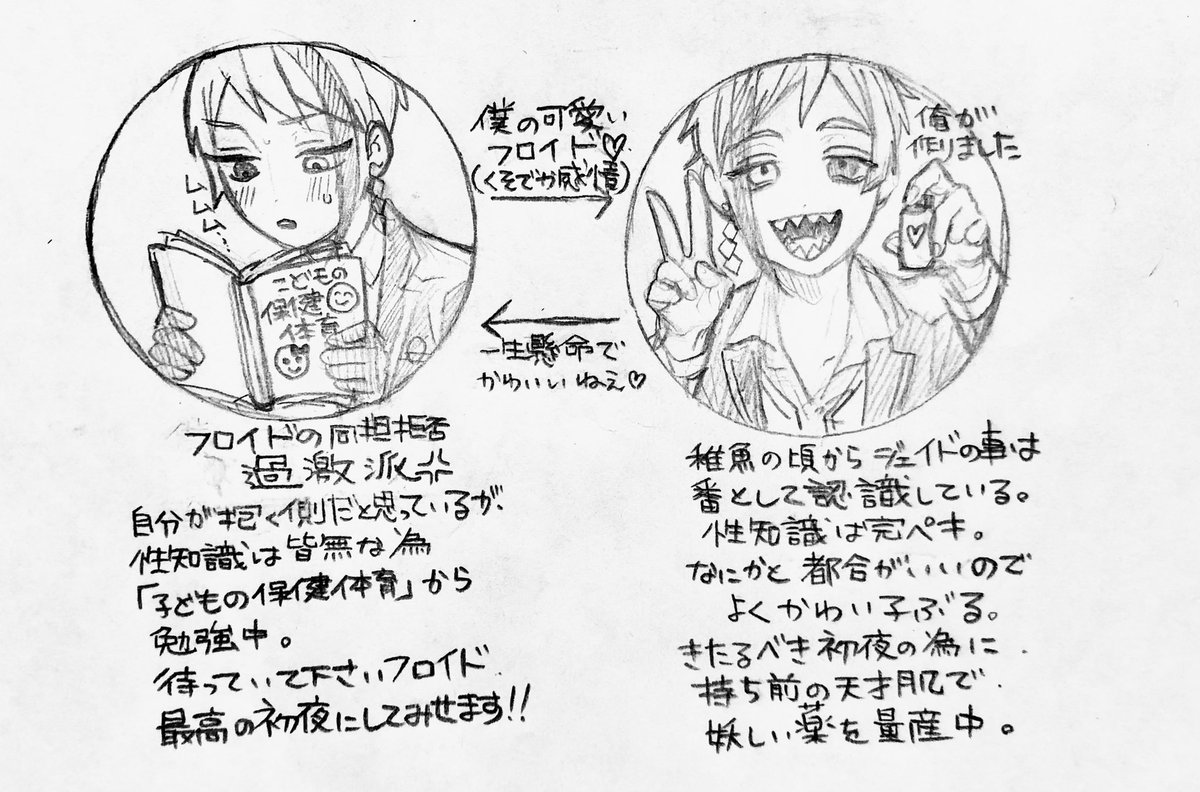 僕の可愛い
フロイド♡
(くそでか感情)
俺が
作りました
ムムム…
こどもの
保健
体育
一生懸命で
かわいいねぇ♡
フロイドの同担拒否
過激派💢
自分が抱く側だと思っているが、
性知識は皆無な為
「子どもの保健体育」から
勉強中。
待っていて下さいフロイド
最高の初夜にしてみせます!!
稚魚の頃からジェイドの事は
番として認識している。
性知識は完ペキ。
なにかと都合がいいので
よくかわい子ぶる。
きたるべき初夜の為に
持ち前の天才肌で
妖しい薬を量産中。